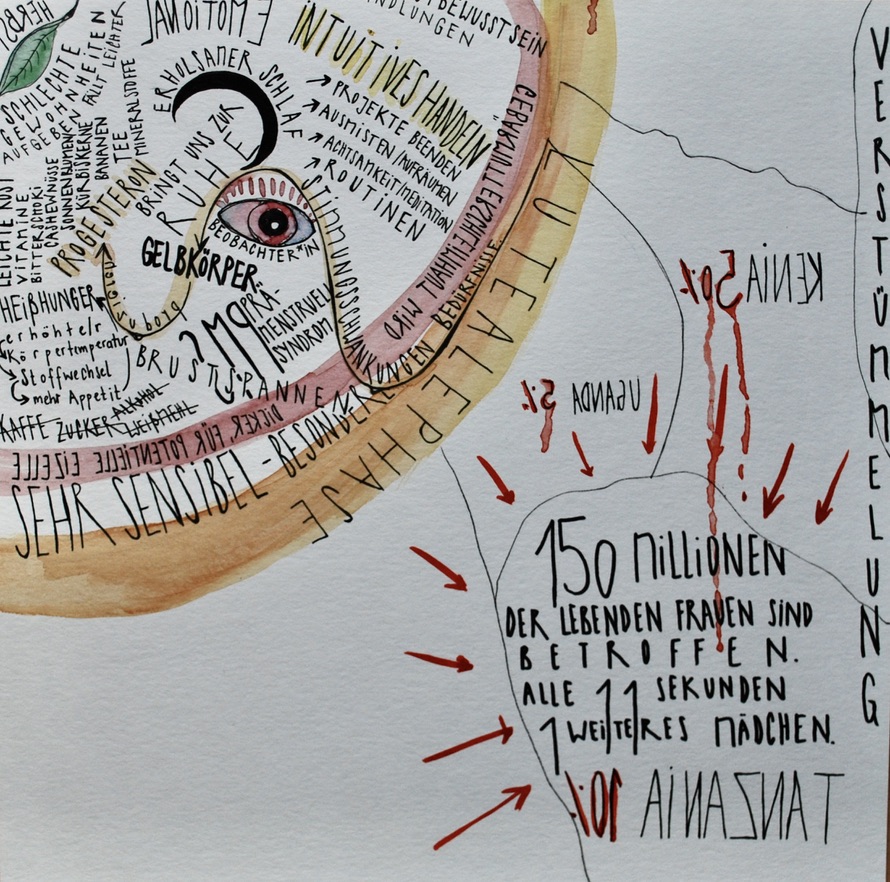 EMOTIONAL
TBEWUSSTSEIN
NDLUNGEN
INTUITIVES HANDELN
→ PROJEKTE BEENDEN
→ AUSMISTEN/AUFRÄUMEN
→ ACHTSAMKEIT/MEDITATION
→ ROUTINEN
ERHOLSAMER SCHLAF
BRINGT UNS ZUR
RUHE
HERBS
SCHLECHTE
GEWOHNHEITEN
AUFGEBEN FÄLLT LEICHTER
LEICHTE KOST
VITAMINE
BITTERSCHOKI
CASHEWNÜSSE
SONNENBLUMENK
KÜRBISKERNE
BANANEN
TEE
MINERALSTOFFE
PROGESTERON
GELBKÖRPER
BEOBACHTER*IN
STIMMUNGSSCHWANKUNGEN
PMS
PRÄ-
MENSTRUELL
SYNDROM
HEIßHUNGER
erhöhte
Körpertemperatur
Stoffwechsel
mehr Appetit
BRUSTSPANNEN
KAFFE ZUCKER ALKOHOL
WEIßMEHL
DICKER, FÜR POTENTIELLE EIZELLE
SEHR SENSIBEL - BESONDERE
BEDÜRFNISSE
LUTEALEPHASE
VERSTÜMMELUNG
KENIA 50%
UGANDA 5%
150 MILLIONEN
DER LEBENDEN FRAUEN SIND
BETROFFEN.
ALLE 11 SEKUNDEN
1 WEITERES MÄDCHEN.
TANZANIA 10%